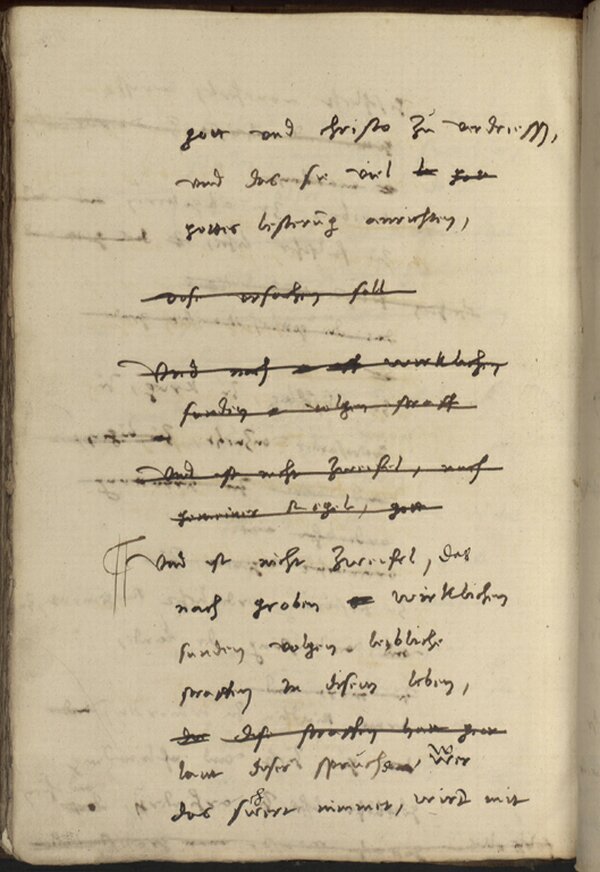 gott und christo zu verdriess,
und das sie viel
gottes lesterung anrichten,
ursachen soll
Und nach wirklichen
sunden volgen straff
Und ist nicht zweifel, nach
gemeiner Regel, gott
Und ist nicht zweifel, das
nach groben wirklichen
sunden volgen leibliche
straffen in disem leben,
dise straffen hatt gott
laut diser spruche, Wer
das schwert nimmet, wird mit